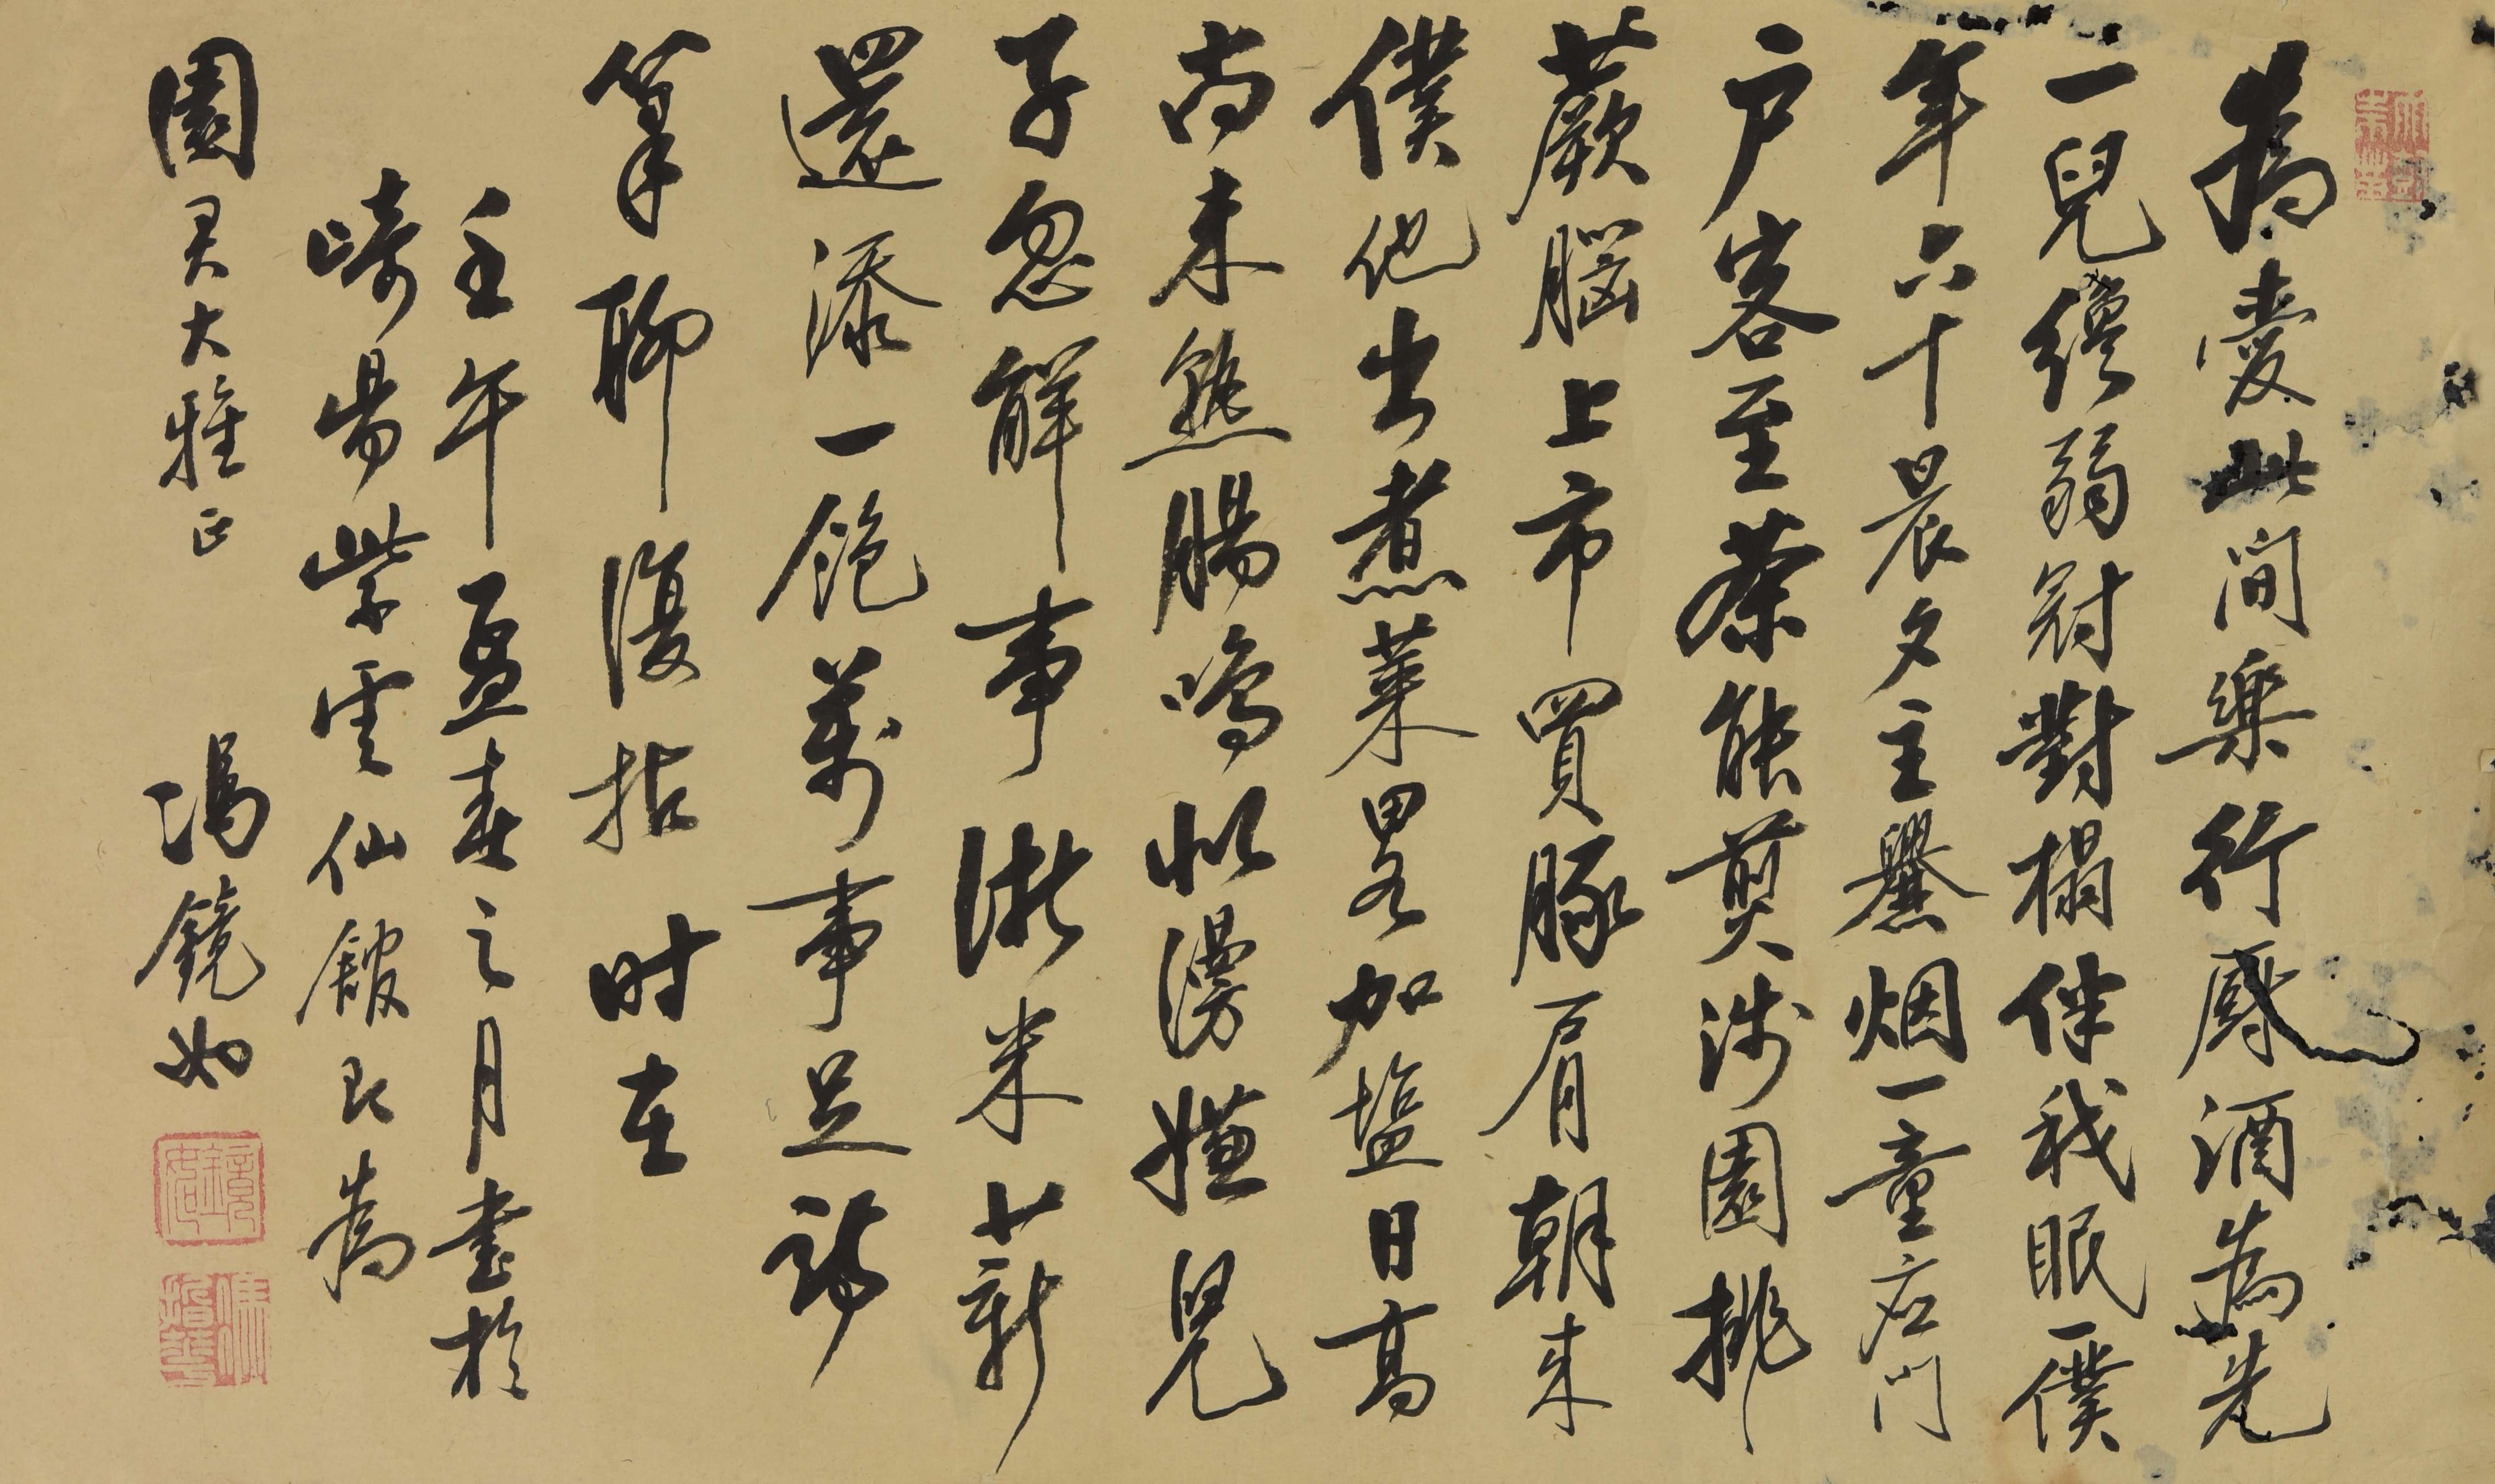 為愛此間樂行厨酒為先
一兒纔弱冠對榻伴我眠一僕
年六十晨夕主爨烟一童应門
户客至茶能煎涉園挑
蕨脳上市買豚肩朝来
僕他出煮菜畧加塩日高
尚未熟腸鳴似漫嫌兒
子忽解事淅米廾薪
還添一飽萬事足詩
筆聊復拈时在
壬午孟春之月書於
崎陽紫雲仙館即為
園君大雅正
馮鏡如